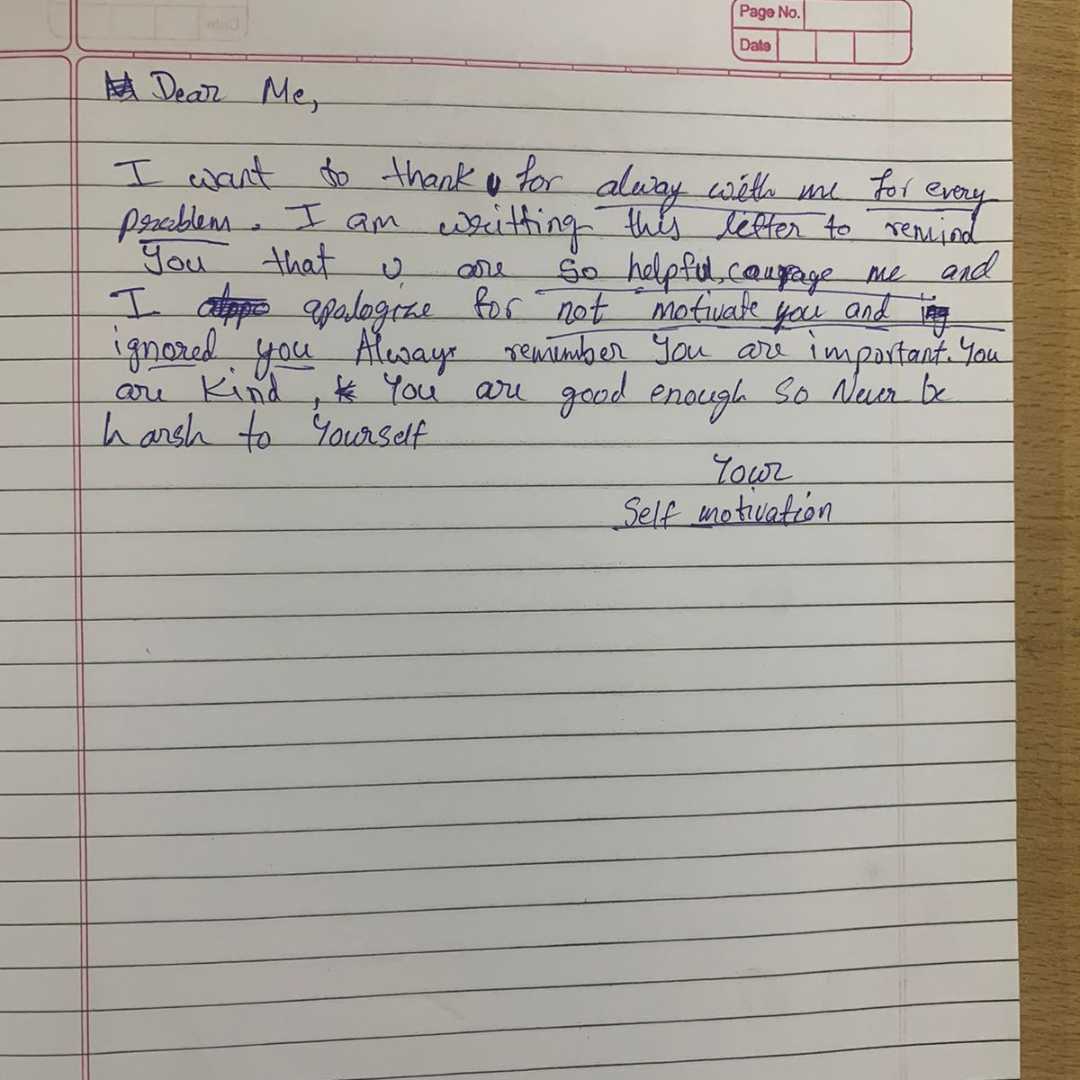 Page No.
Date
Dear Me,
I want to thank u for alway with me for every
problem. I am writting this letter to remind
You that u are so helpful, courage me and
I apologize for not motivate you and
ignored you Always remember You are important. You
are Kind, You are good enough So Never be
harsh to Yourself
Your
Self motivation